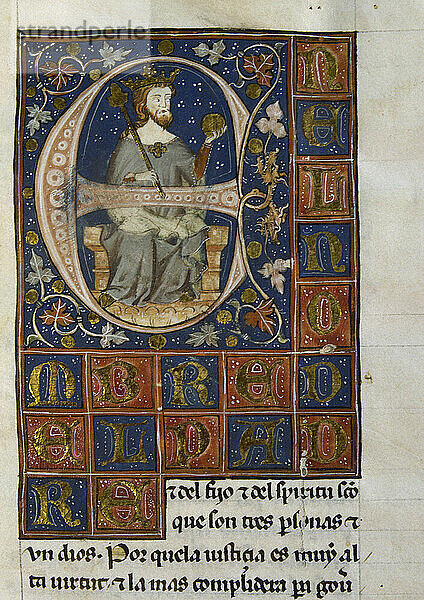 E N
E
L
N
O
M B R E D
E L P A D
R E
⁊ del fijo ⁊ del spiritu sc̃o
que son tres ꝑsonas ⁊
vn dios. Por que la iusticia es muy al
ta virtut ⁊ la mas complidera pa gou̾